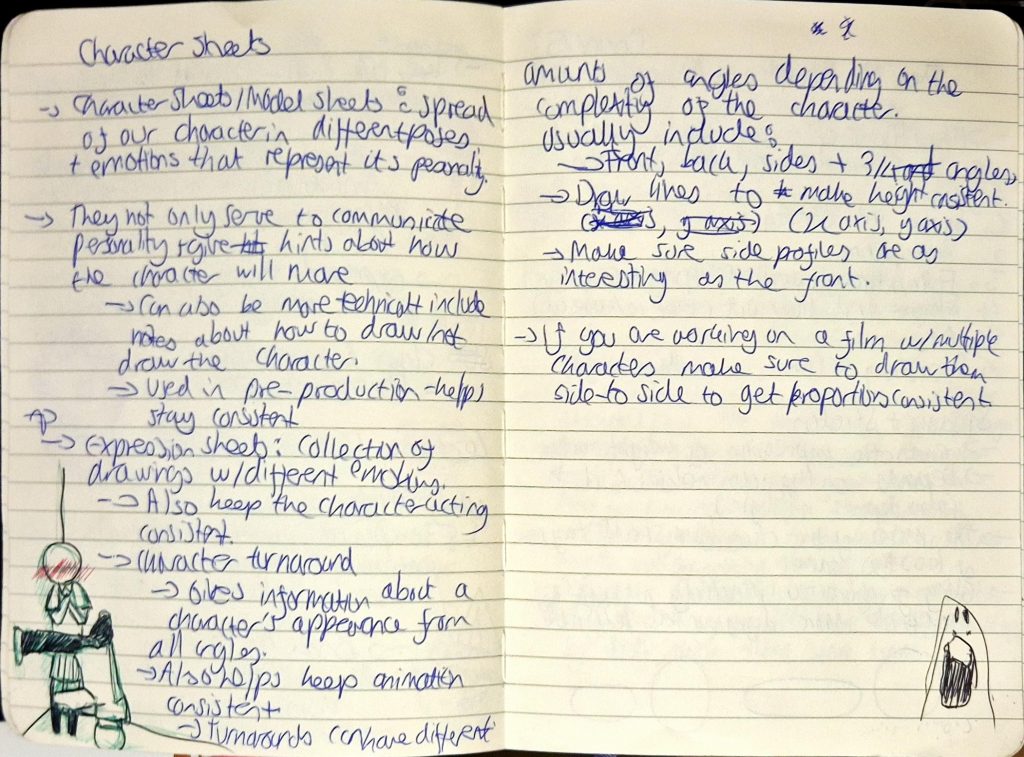 Character Sheets
→ Character sheets/Model sheets : spread
of our character in different poses
+ emotions that represent its peonalty.
→ They not only serve to communicate
personality + give hints about how
the character will move
→ Can also be more technical + include
notes about how to draw/not
draw the character.
→ Used in pre-production - helps
stay consistent
→ Expression sheets: collection of
drawings w/different emotions.
→ Also keep the character acting
consistent.
→ Character turnaround
→ Gives information about a
character's appearence from
all angles.
→ Also helps keep animation
consistent
→ Turnarounds can have different
amunts of angles depending on the
complexity of the character.
Usually include:
→ Front, back, sides + 3/4 angles,
→ Draw lines to make height cnsistent.
(x axis, y axis) (x axis, y axis)
→ Make sure side profiles are as
interesting as the front.
→ If you are working on a film w/multiple
characters make sure to draw them
side-to side to get proportions consistent